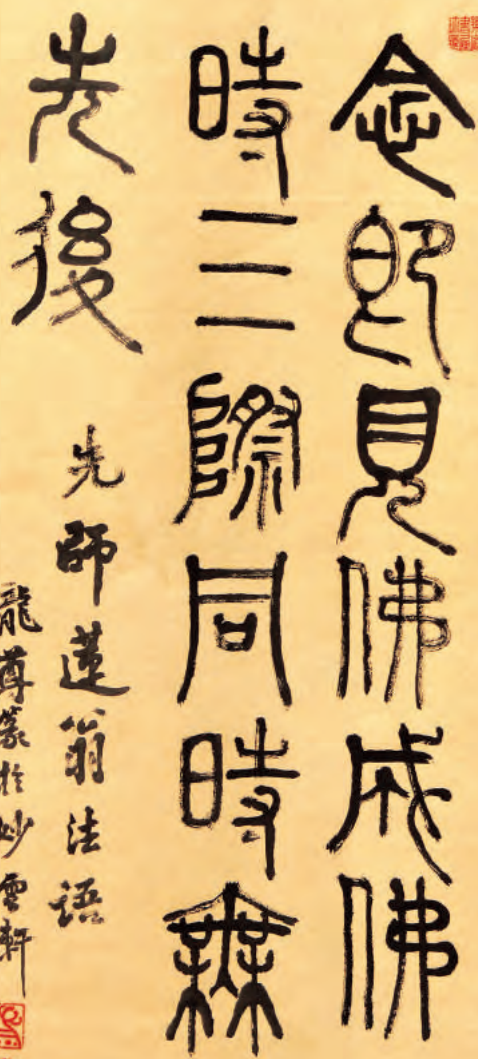 念即見佛成佛
時三際同時無
先後
先師蓮翁法語
龍尊篆於妙雲軒